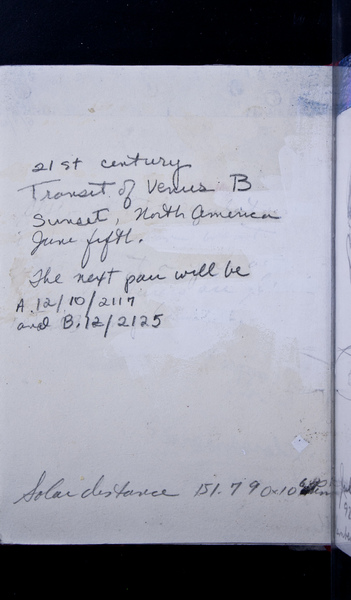 21st century
Transit of Venus B
Sunset, North America
June fifth.
The next pair will be
A. 12/10/2117
and B. 12/2125
Solar distance 151.790x10